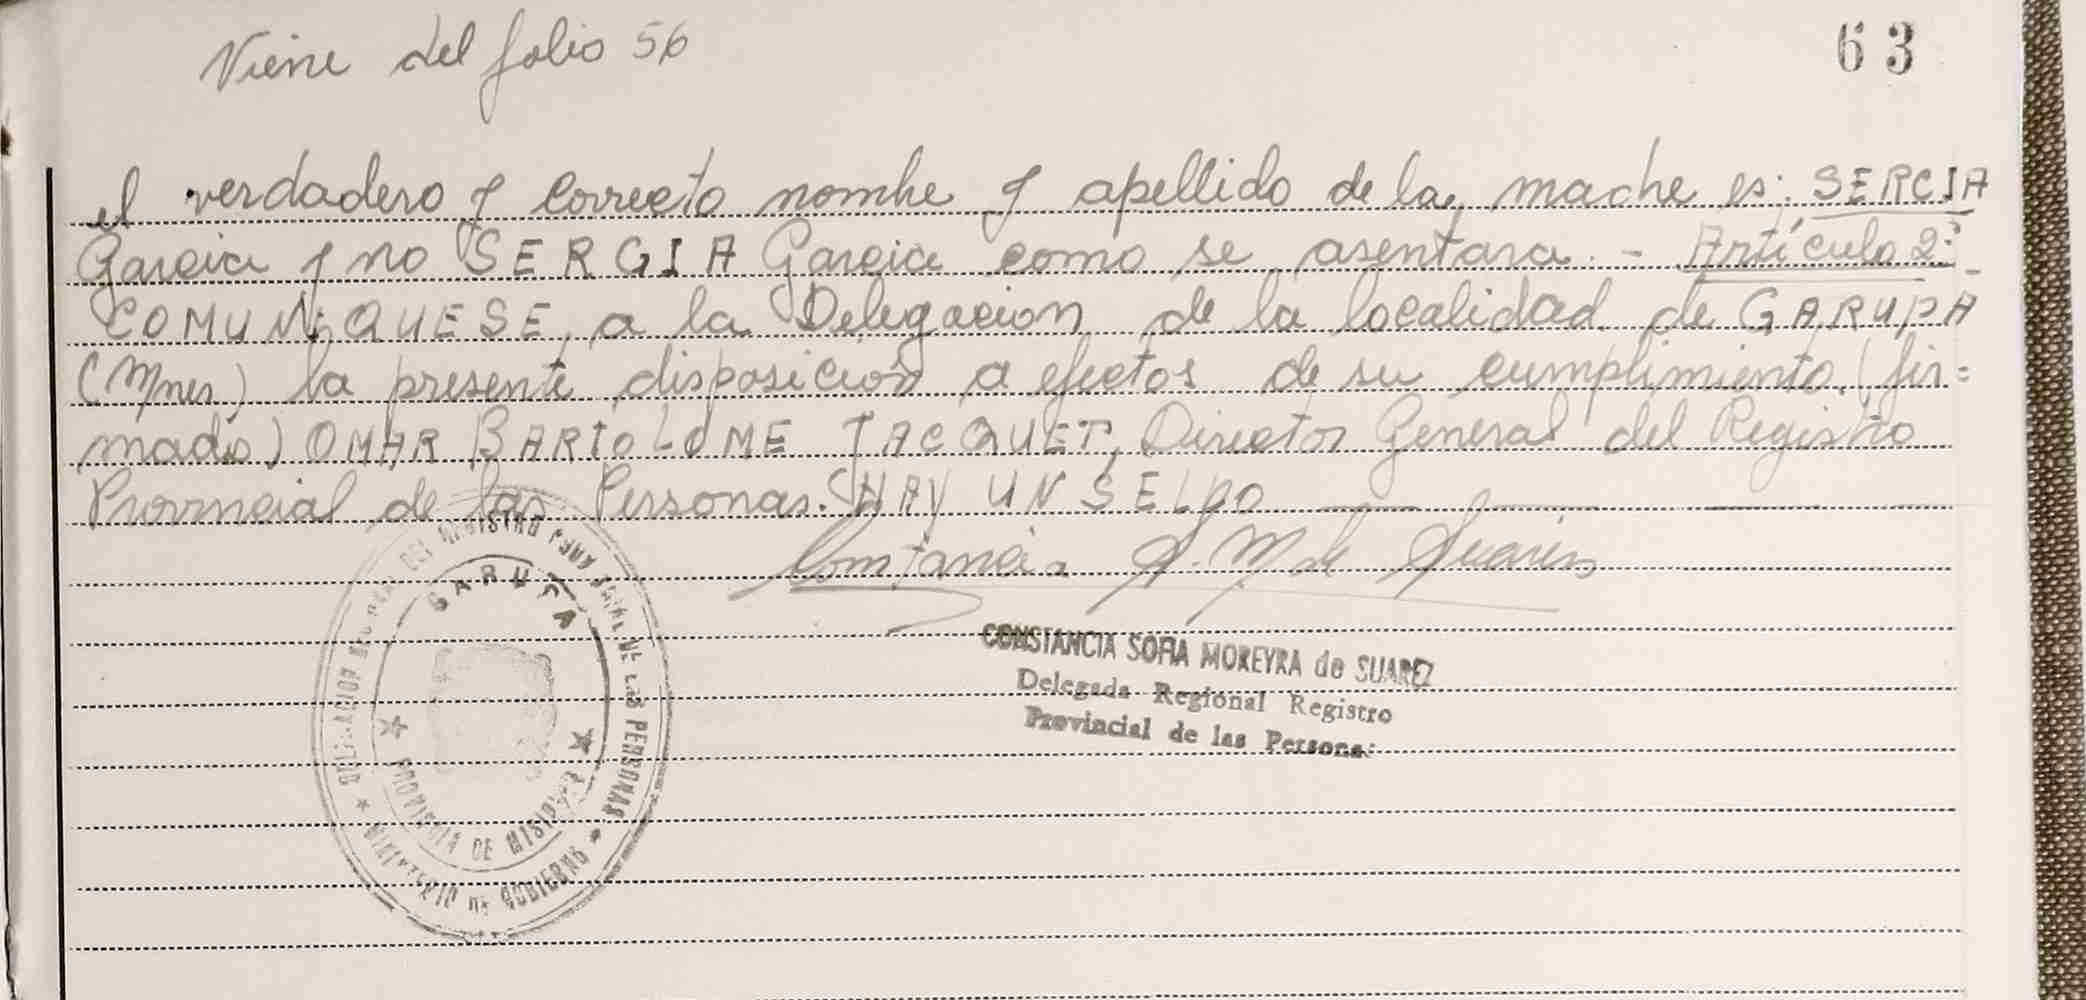 Viene del folio 56
63
el verdadero y correcto nombre y apellido de la madre es: SERCIA
Garcia y no SERGIA Garcia como se asentara. - Artículo 2º:
COMUNIQUESE, a la Delegacion de la localidad de GARUPA
(Mnes) la presente disposicion a efectos de su cumplimiento. (fir=
mado) OMAR BARTOLOME JACQUET, Director General del Registro
Provincial de las Personas. HAY UN SELLO
Constancia S. M de Suarez
CONSTANCIA SOFIA MOREYRA de SUAREZ
Delegada Regional Registro
Provincial de las Personas
GARUPA
PROVINCIA DE MISIONES
DEL REGISTRO PROVINCIAL DE LAS PERSONAS
MINISTERIO DE GOBIERNO